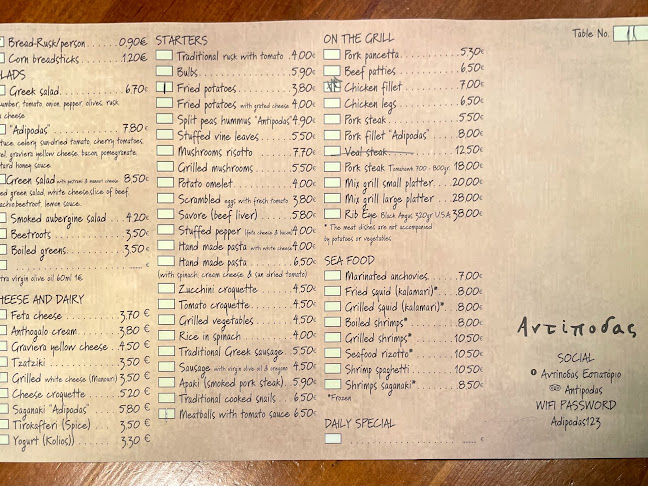 Bread-Rusk/person 0,90€
Corn breadsticks 1,20€
LADS
Greek salad 6,70€
cumber, tomato, onion, pepper, olives, rusk,
a cheese
"Adipodas" 7,80€
tuce, celery, sun-dried tomato, cherry tomatoes,
graviera yellow cheese, bacon, pomegranate,
tard honey sauce.
Green salad with pastrami & manouri cheese 8,50€
green salad, white cheese, slice of beef,
sauce, lemon sauce.
Smoked aubergine salad 4,20€
Beetroots 3,50€
Boiled greens 3,50€
€
tra virgin olive oil 60ml 1€
HEESE AND DAIRY
Feta cheese 3,70 €
Anthogalo cream 3,80 €
Graviera yellow cheese 4,50 €
Tzatziki 3,50 €
Grilled white cheese (Manouri) 3,50 €
Cheese croquette 5,20 €
Saganaki "Adipodas" 5,80 €
Tirokafteri (Spice) 3,50 €
Yogurt (Kolios) 3,30 €
STARTERS
Traditional rusk with tomato 4,00€
Bulbs 5,90€
Fried potatoes 3,80€
Fried potatoes with grated cheese 4,00€
Split peas hummus "Antipodas" 4,90€
Stuffed vine leaves 5,50€
Mushrooms risotto 7,70€
Grilled mushrooms 5,50€
Potato omelet 4,00€
Scrambled eggs with fresh tomato 3,80€
Savore (beef liver) 5,80€
Stuffed pepper (feta cheese & bacon) 4,00€
Hand made pasta with white cheese 4,00€
Hand made pasta 6,50€
(with spinach, cream cheese & sun dried tomato)
Zucchini croquette 4,50€
Tomato croquette 4,50€
Grilled vegetables 4,50€
Rice in spinach 4,00€
Traditional Greek sausage 5,50€
Sausage with virgin olive oil & oregano 4,50€
Apaki (smoked pork steak) 5,90€
Traditional cooked snails 6,50€
Meatballs with tomato sauce 6,50€
ON THE GRILL
Pork pancetta 5,30€
Beef patties 6,50€
Chicken fillet 7,00€
Chicken legs 6,50€
Pork steak 5,50€
Pork fillet "Adipodas" 8,00€
Veal steak 12,50€
Pork steak Tomahawk 700 - 800gr. 18,00€
Mix grill small platter 20,00€
Mix grill large platter 28,00€
Rib Eye Black Angus 320gr U.S.A 38,00€
* The meat dishes are not accompanied
by potatoes or vegetables
SEA FOOD
Marinated anchovies 7,00€
Fried squid (kalamari)* 8,00€
Grilled squid (kalamari)* 8,00€
Boiled shrimps* 8,00€
Grilled shrimps* 10,50€
Seafood rizotto* 10,50€
Shrimp spaghetti 10,50€
Shrimps saganaki* 8,50€
*Frozen
DAILY SPECIAL
€
Table No. 11
Αντίποδας
SOCIAL
Αντίποδας Εστιατόριο
Antipodas
WIFI PASSWORD
Adipodas123